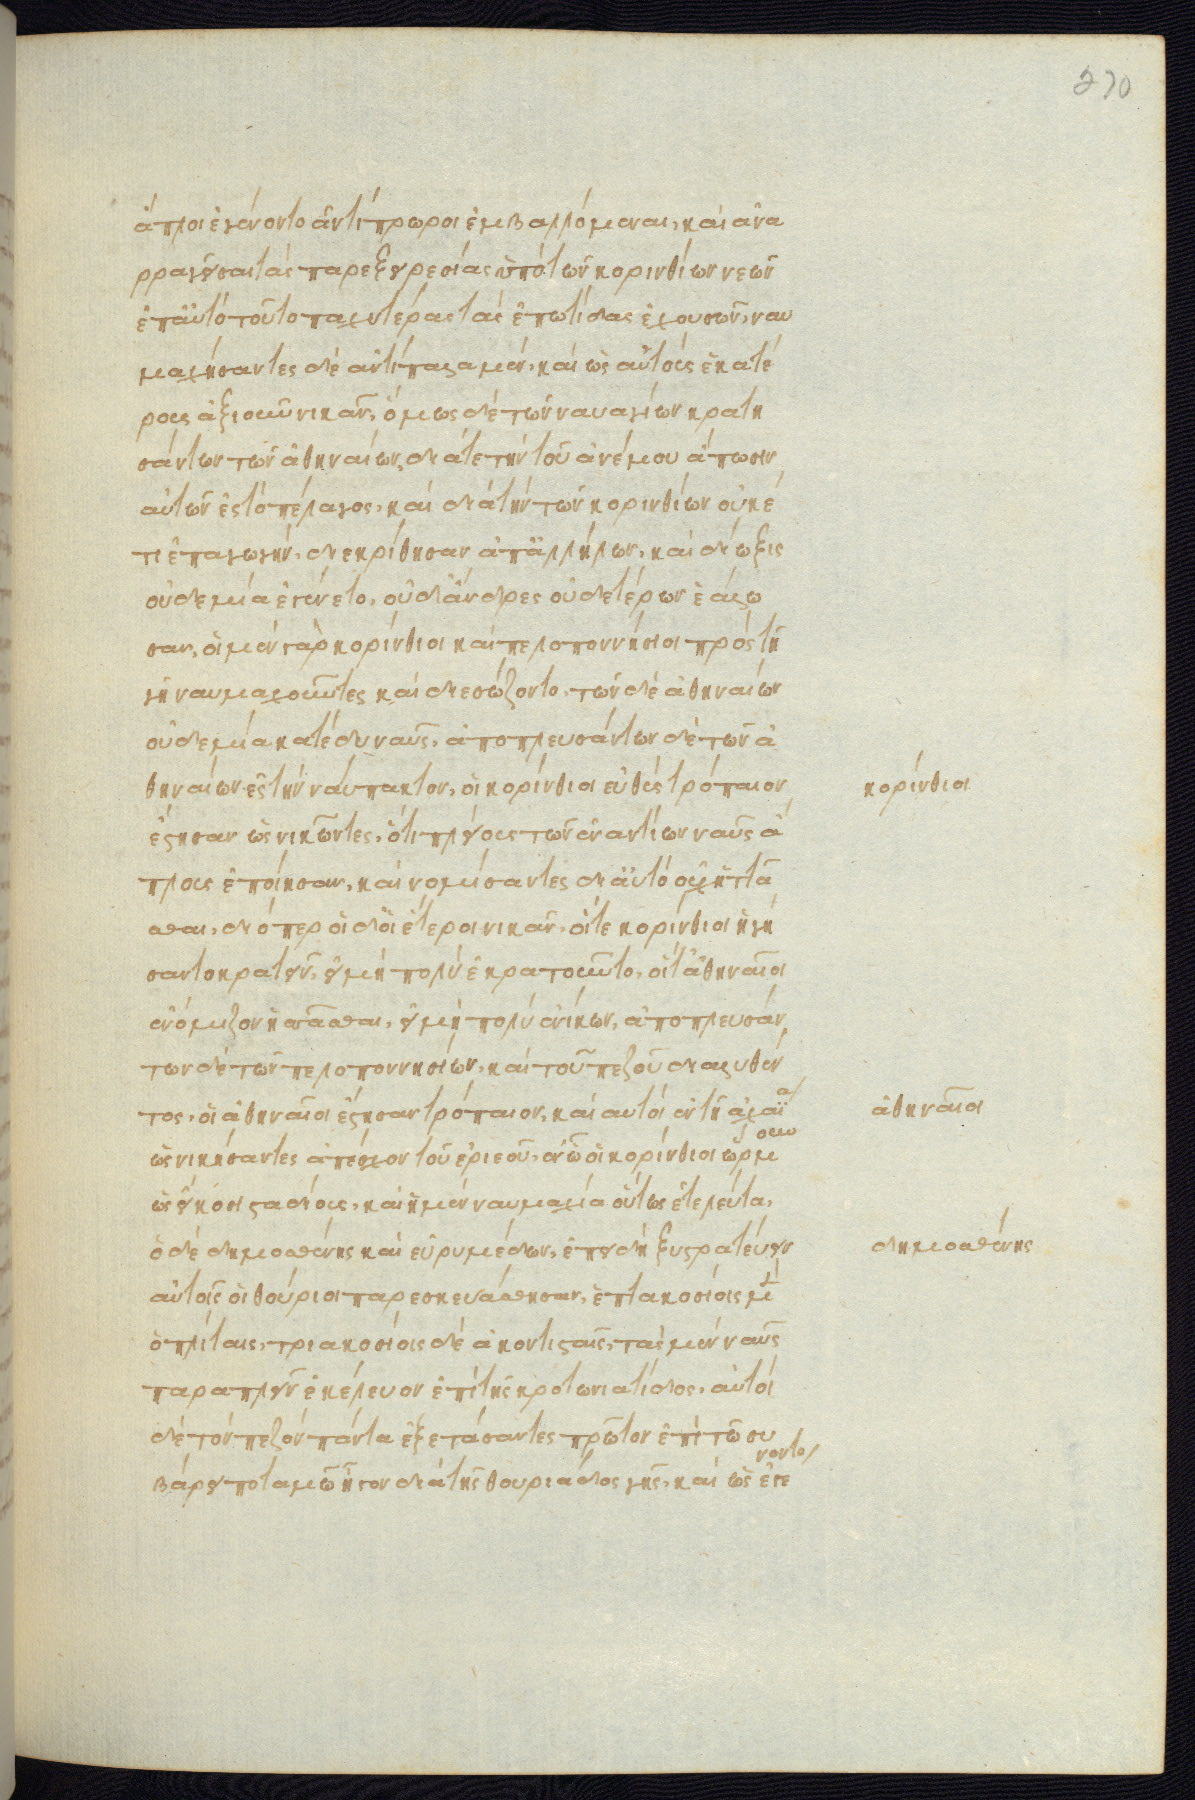 ἄπλοι ἐγένοντο ἀντίπρωροι ἐμβαλλόμεναι, καὶ ἀνα
ρραγεῖσαι τὰς παρεξειρεσίας ὑπὸ τῶν κορινθίων νεῶν
ἐπ' αὐτὸ τοῦτο παχυτέρας τὰς ἐπωτίδας ἐχουσῶν, ναυ
μαχήσαντες δὲ ἀντίπαλα μὲν, καὶ ὡς αὐτοὺς ἑκατέ
ρους ἀξιοῦν νικᾶν, ὅμως δὲ τῶν ναυαγίων κρατη
σάντων τῶν ἀθηναίων, διά τε τὴν τοῦ ἀνέμου ἄπωσιν
αὐτῶν ἐς τὸ πέλαγος, καὶ διὰ τὴν τῶν κορινθίων οὐκέ
τι ἐπαγωγήν, διεκρίθησαν ἀπ' ἀλλήλων, καὶ δίωξις
οὐδεμία ἐγένετο, οὐδ' ἄνδρες οὐδετέρων ἑάλω
σαν, οἱ μὲν γὰρ κορίνθιοι καὶ πελοποννήσιοι πρὸς τῇ
γῇ ναυμαχοῦντες καὶ διεσώζοντο, τῶν δὲ ἀθηναίων
οὐδεμία κατέδυ ναῦς, ἀποπλευσάντων δὲ τῶν ἀ
θηναίων ἐς τὴν ναύπακτον, οἱ κορίνθιοι εὐθὺς τρόπαιον
ἔστησαν ὡς νικῶντες, ὅτι πλείους τῶν ἐναντίων ναῦς ἄ
πλους ἐποίησαν, καὶ νομίσαντες δι' αὐτὸ οὐχ ἡττᾶ
σθαι, διόπερ οἱ δ' οἱ ἕτεροι νικᾶν, οἵ τε κορίνθιοι ἡγή
σαντο κρατεῖν, εἰ μὴ πολὺ ἐκρατοῦντο, οἵ τ' ἀθηναῖοι
ἐνόμιζον ἡσσᾶσθαι, εἰ μὴ πολὺ ἐνίκων, ἀποπλευσάν
των δὲ τῶν πελοποννησίων, καὶ τοῦ πεζοῦ διαλυθέν
τος, οἱ ἀθηναῖοι ἔστησαν τρόπαιον, καὶ αὐτοὶ ἐν τῇ ἀχαΐα
ὡς νικήσαντες ἀπέχον τοῦ ἐρινεοῦ, ἐν ᾧ οἱ κορίνθιοι ὥρμουν
ὡς εἴκοσι σταδίους, καὶ ἡ μὲν ναυμαχία οὕτως ἐτελεύτα,
ὁ δὲ δημοσθένης καὶ εὐρυμέδων, ἐπειδὴ ξυστρατεύειν
αὐτοῖς οἱ θούριοι παρεσκευάσθησαν, ἑπτακοσίοις μὲν
ὁπλίταις, τριακοσίοις δὲ ἀκοντισταῖς, τὰς μὲν ναῦς
παραπλεῖν ἐκέλευον ἐπὶ τῆς κροτωνιάτιδος, αὐτοὶ
δὲ τὸν πεζὸν πάντα ἐξετάσαντες πρῶτον ἐπὶ τῷ συ
βάρει ποταμῷ ἦγον διὰ τῆς θουριάδος γῆς, καὶ ὡς ἐγένοντο
κορίνθιοι
ἀθηναῖοι
δημοσθένης
270